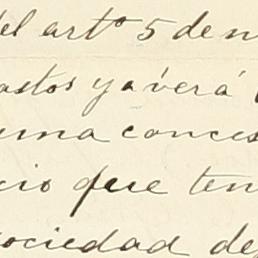 del artº 5 de
astos ya verá
una conces
cio que ten
sociedad de